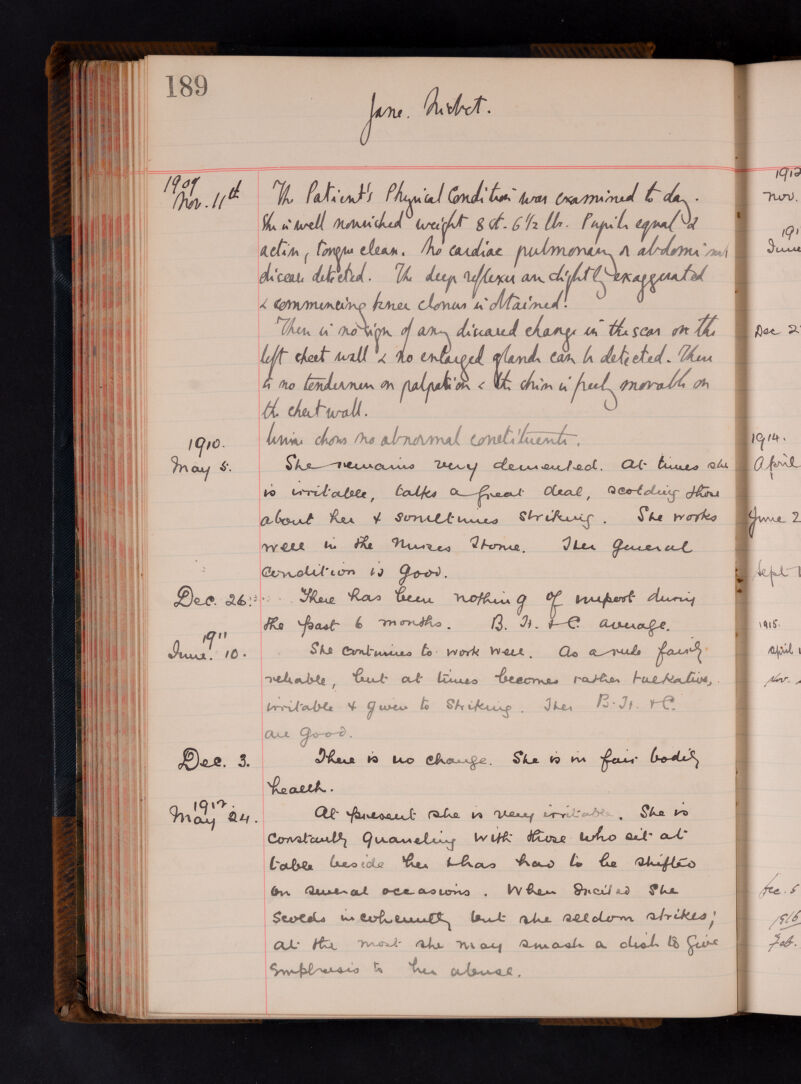 189
Jane. Nisbet.
1909 Nov. 11th The Patient's Physical Condition was examined to day.
She is well nourished weight 8 st. 6 1/2 lbs. Pupils equal &
active, tongue clean. No cardiac pulmonary or abdominal
disease detected. The deep reflexes are slightly exaggerated
& commencing knee clonus is obtained.
There is no sign of any diseased change in the scar on the
left chest wall & no enlarged glands can be detected. There
is no tenderness on palpation & the skin is freely movable on
the chest wall.
Urine shows no abnormal constituents.
1910. May 5. She remains very demented. At times she
is irritable, talks a great deal, scolding those
about her & sometimes striking. She works
well in the Nurses Home. Her general
condition is good.
Dec. 26. There has been nothing of import during
the past 6 months. B. H. & C. average.
1911 June. 10. She continues to work well. As a rule fairly
reliable, but at times becomes rather talkative,
irritable & given to striking. Her B. H. & C.
are good.
Dec. 3. There is no change. She is in fair bodily
health.
1912. May 24. At present she is very irritable. She is
constantly quarreling with those who sit at
table beside her & has had to be shifted
on several occasions. When excited she
scolds incoherently but she seldom strikes;
at the most she may smash a dish to give
emphasis to her abuse.
Nov.
June
Dec 2
1914.
April
June 2
Sept
1915.
April
Nov.
Dec. 5
1916
Feb.